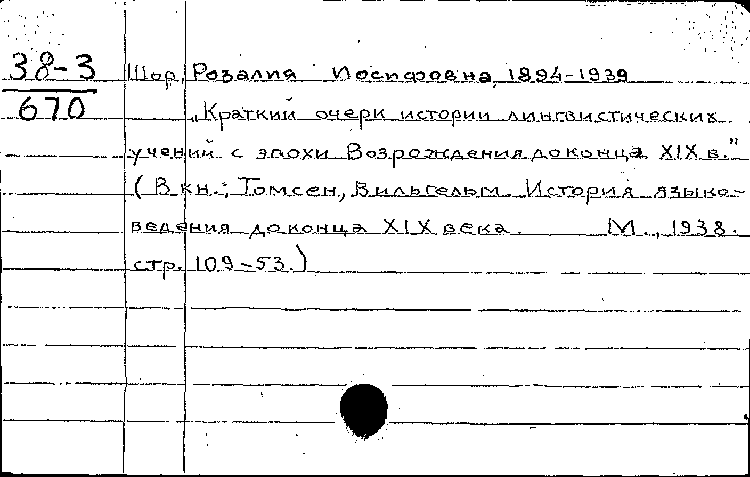 38-3
670
Шор, Розалия Иосифовна, 1894-1939
„Краткий очерк истории лингвистических
учений с эпохи Возрождения до конца XIX в."
(В кн.: Томсен, Вильгельм. История языко-
ведения до конца XIX века. М., 1938.
стр. 109-53.)